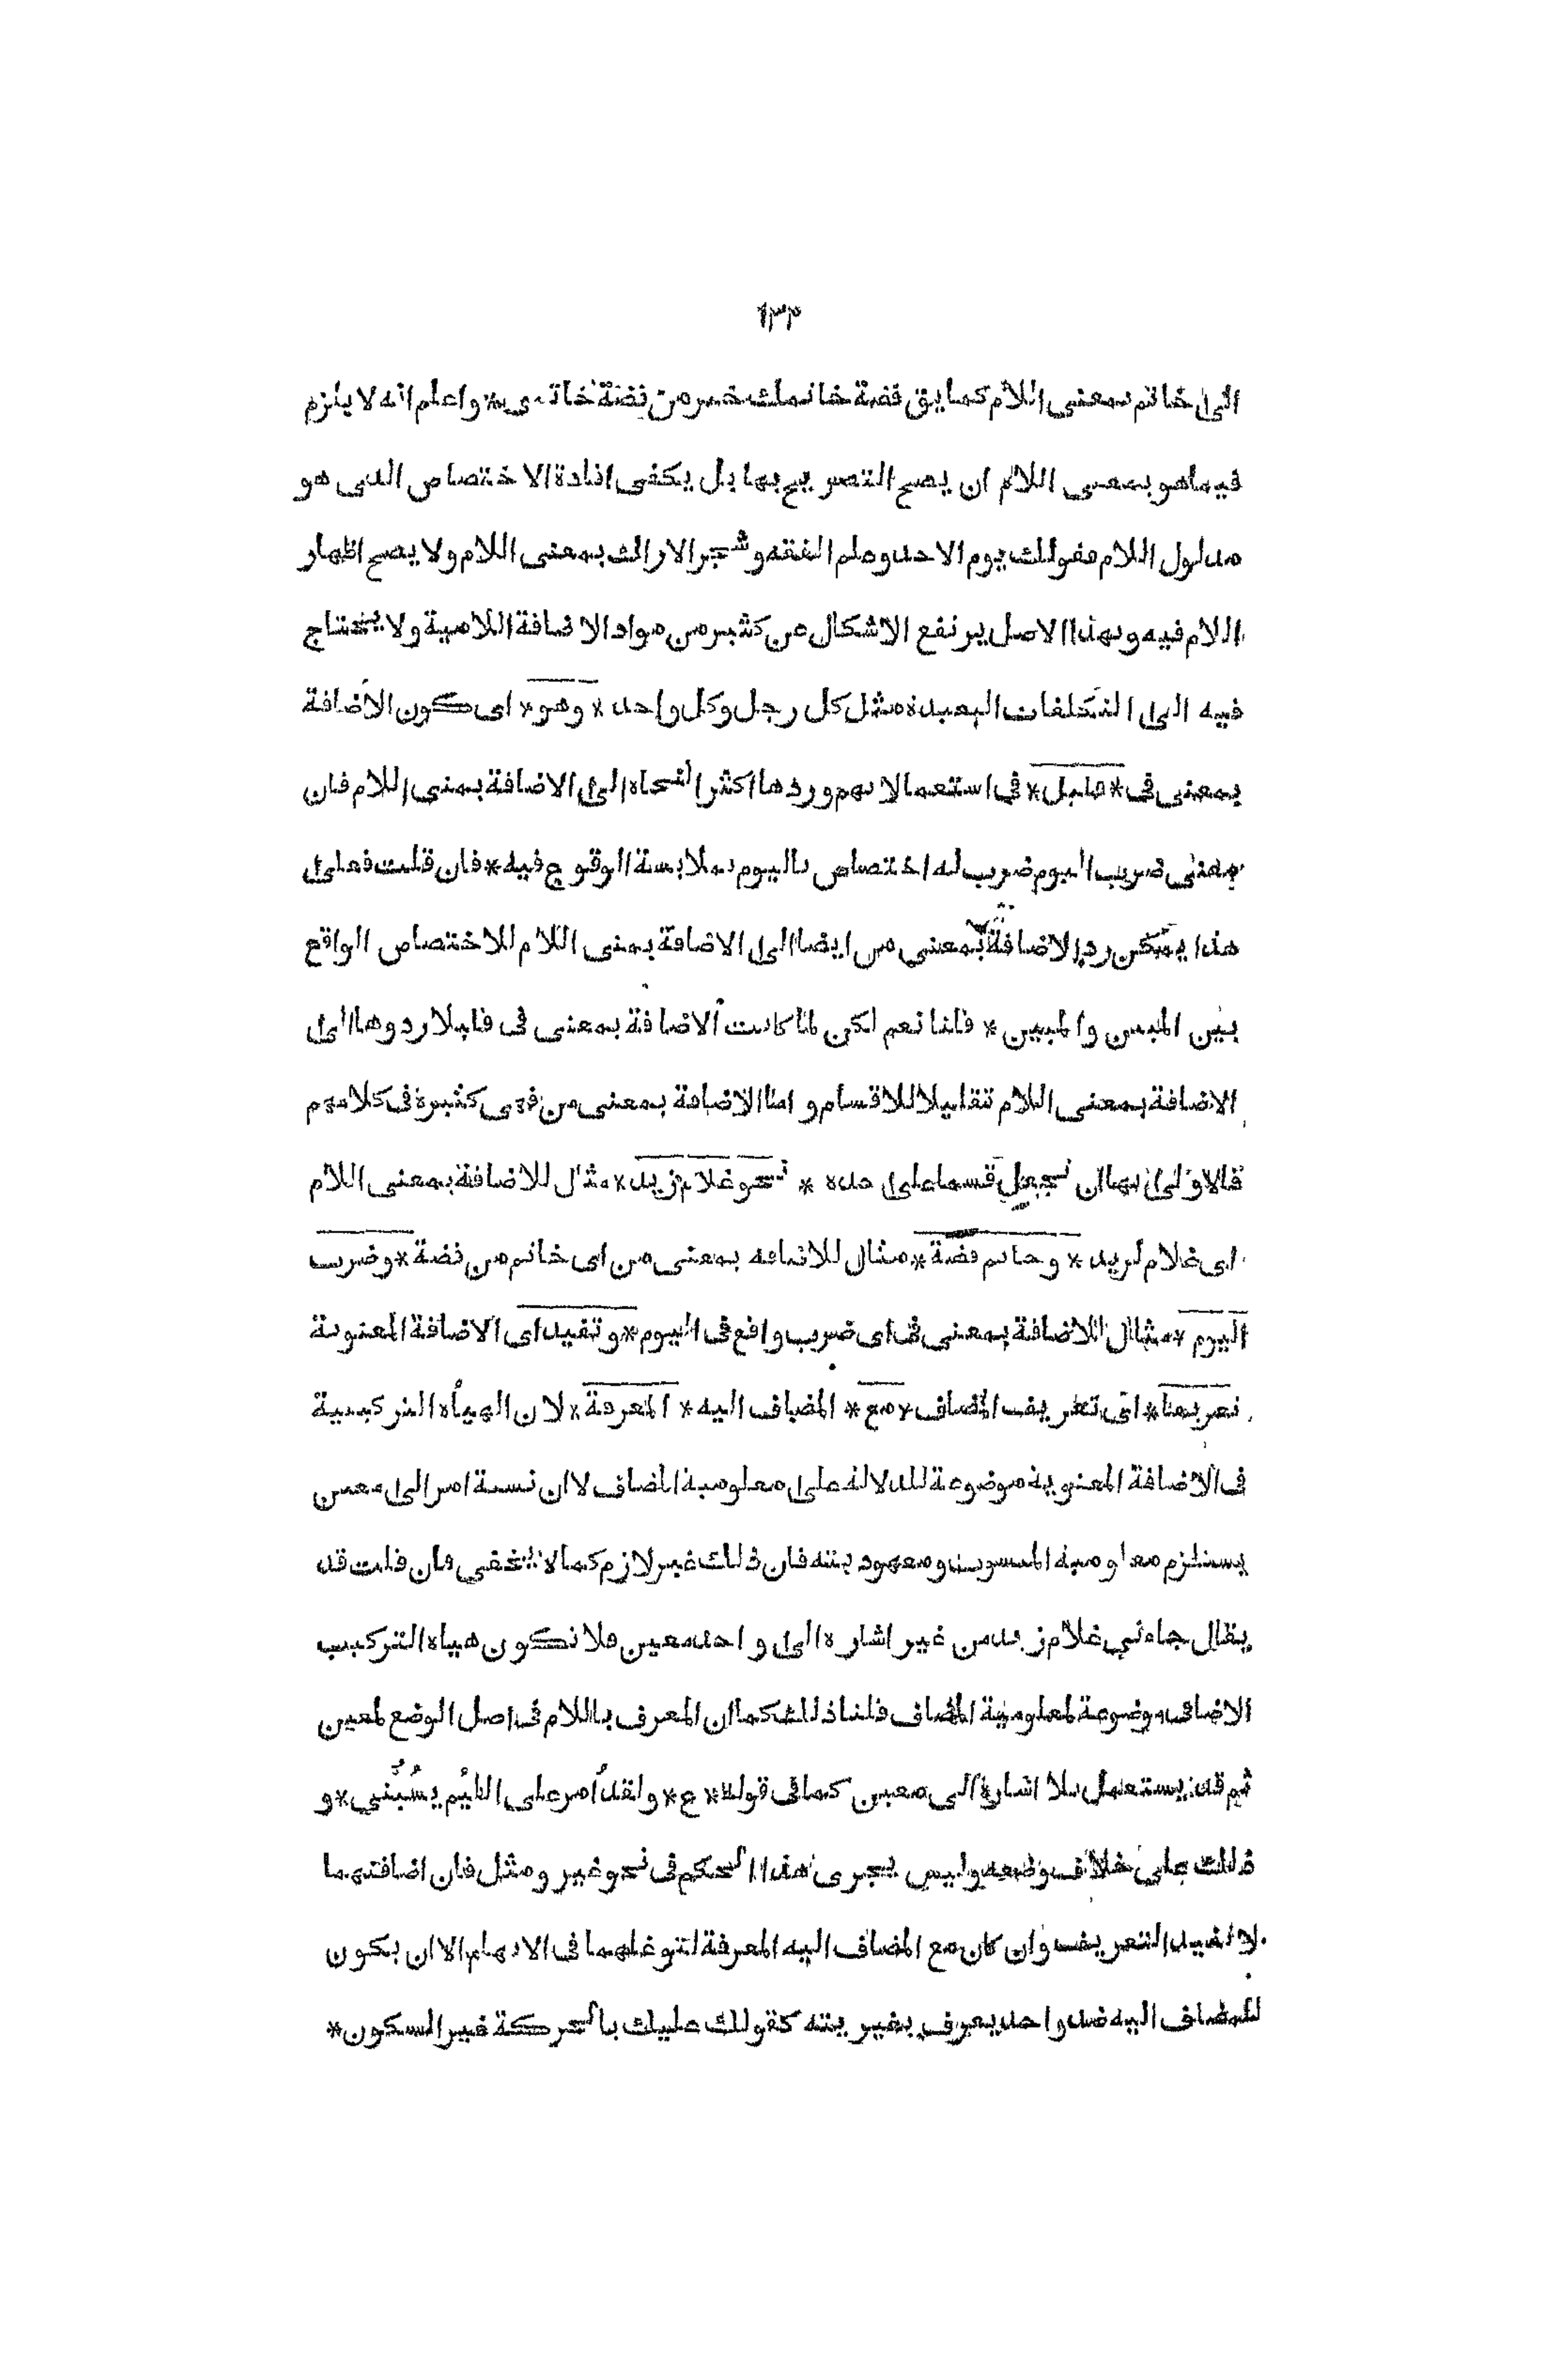 ١٣٣
الى خاتم بمعنى اللام كما يق فضة خاتمك خير من فضة خاتمى * واعلم انه لا يلزم
فيما هو بمعنى اللام ان يصح التصريح بها بل يكفى افادة الاختصاص الذى هو
مدلول اللام فقولك يوم الاحد وعلم الفقه وشجر الاراك بمعنى اللام ولا يصح اظهار
اللام فيه وبهذا الاصل يرتفع الاشكال عن كثير من مواد الاضافة اللامية ولا يحتاج
فيه الى التكلفات البعيدة مثل كل رجل وكل واحد * وهو * اى كون الاضافة
بمعنى فى * قليل * فى استعمالاتهم وردها اكثر النحاة الى الاضافة بمعنى اللام فان
معنى ضرب اليوم ضرب له اختصاص باليوم بملابسة الوقوع فيه * فان قلت فعلى
هذا يمكن رد الاضافة بمعنى من ايضا الى الاضافة بمعنى اللام للاختصاص الواقع
بين المبين والمبين * قلنا نعم لكن لما كانت الاضافة بمعنى فى قليلا ردوها الى
الاضافة بمعنى اللام تقليلا للاقسام واما الاضافة بمعنى من فهى كثيرة فى كلامهم
فالاولى بها ان تجعل قسما على حدة * نحو غلام زيد * مثال للاضافة بمعنى اللام
اى غلام لزيد * وخاتم فضة * مثال للاضافة بمعنى من اى خاتم من فضة * وضرب
اليوم * مثال للاضافة بمعنى فى اى ضرب واقع فى اليوم * وتفيد اى الاضافة المعنوية
تعريفا * اى تعريف المضاف * مع * المضاف اليه * المعرفة * لان الهيأة التركيبية
فى الاضافة المعنوية موضوعة للدلالة على معلومية المضاف لا ان نسبة امر الى معين
يستلزم معلومية المنسوب ومعهوديته فان ذلك غير لازم كما لا يخفى فان قلت قد
يقال جاءنى غلام زيد من غير اشارة الى واحد معين فلا تكون هيأة التركيب
الاضافى موضوعة لمعلومية المضاف قلنا ذلك كما ان المعرف باللام فى اصل الوضع لمعين
ثم قد يستعمل بلا اشارة الى معين كما فى قوله * ع * ولقد أمر على اللئيم يسُبُّنى * و
ذلك على خلاف وضعه وليس يجرى هذا الحكم فى نحو غير ومثل فان اضافتهما
لا تفيد التعريف وان كان مع المضاف اليه المعرفة لتوغلهما فى الابهام الا ان يكون
للمضاف اليه ضد واحد يعرف بغيريته كقولك عليك بالحركة غير السكون *